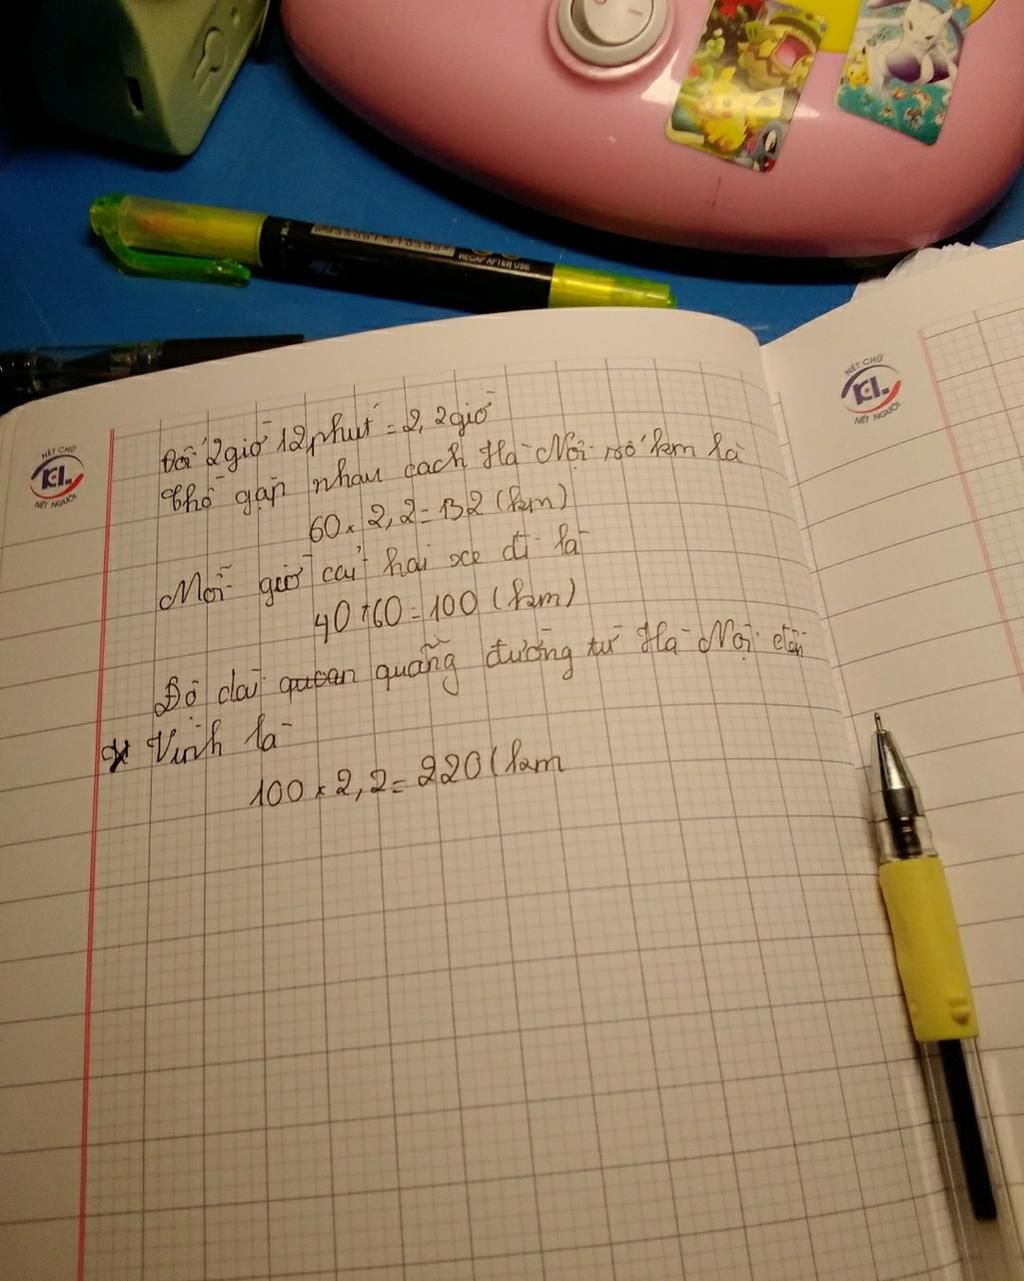 RECAP AFTER USE
NÉT CHỮ
KL
NẾT NGƯỜI
NÉT CHỮ
KL
NẾT NGƯỜI
Đổi 2giờ 12phút = 2,2giờ
Chỗ gặp nhau cách Hà Nội số km là
60 × 2,2 = 132 (km)
Mỗi giờ cả hai xe đi là
40 + 60 = 100 (km)
Độ dài quãng đường từ Hà Nội đến
Vinh là
100 × 2,2 = 220 (km